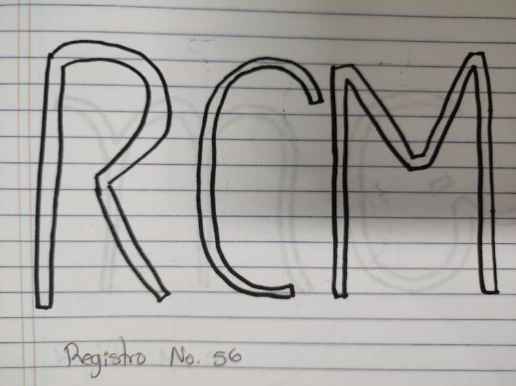 RCM
Registro No. 56